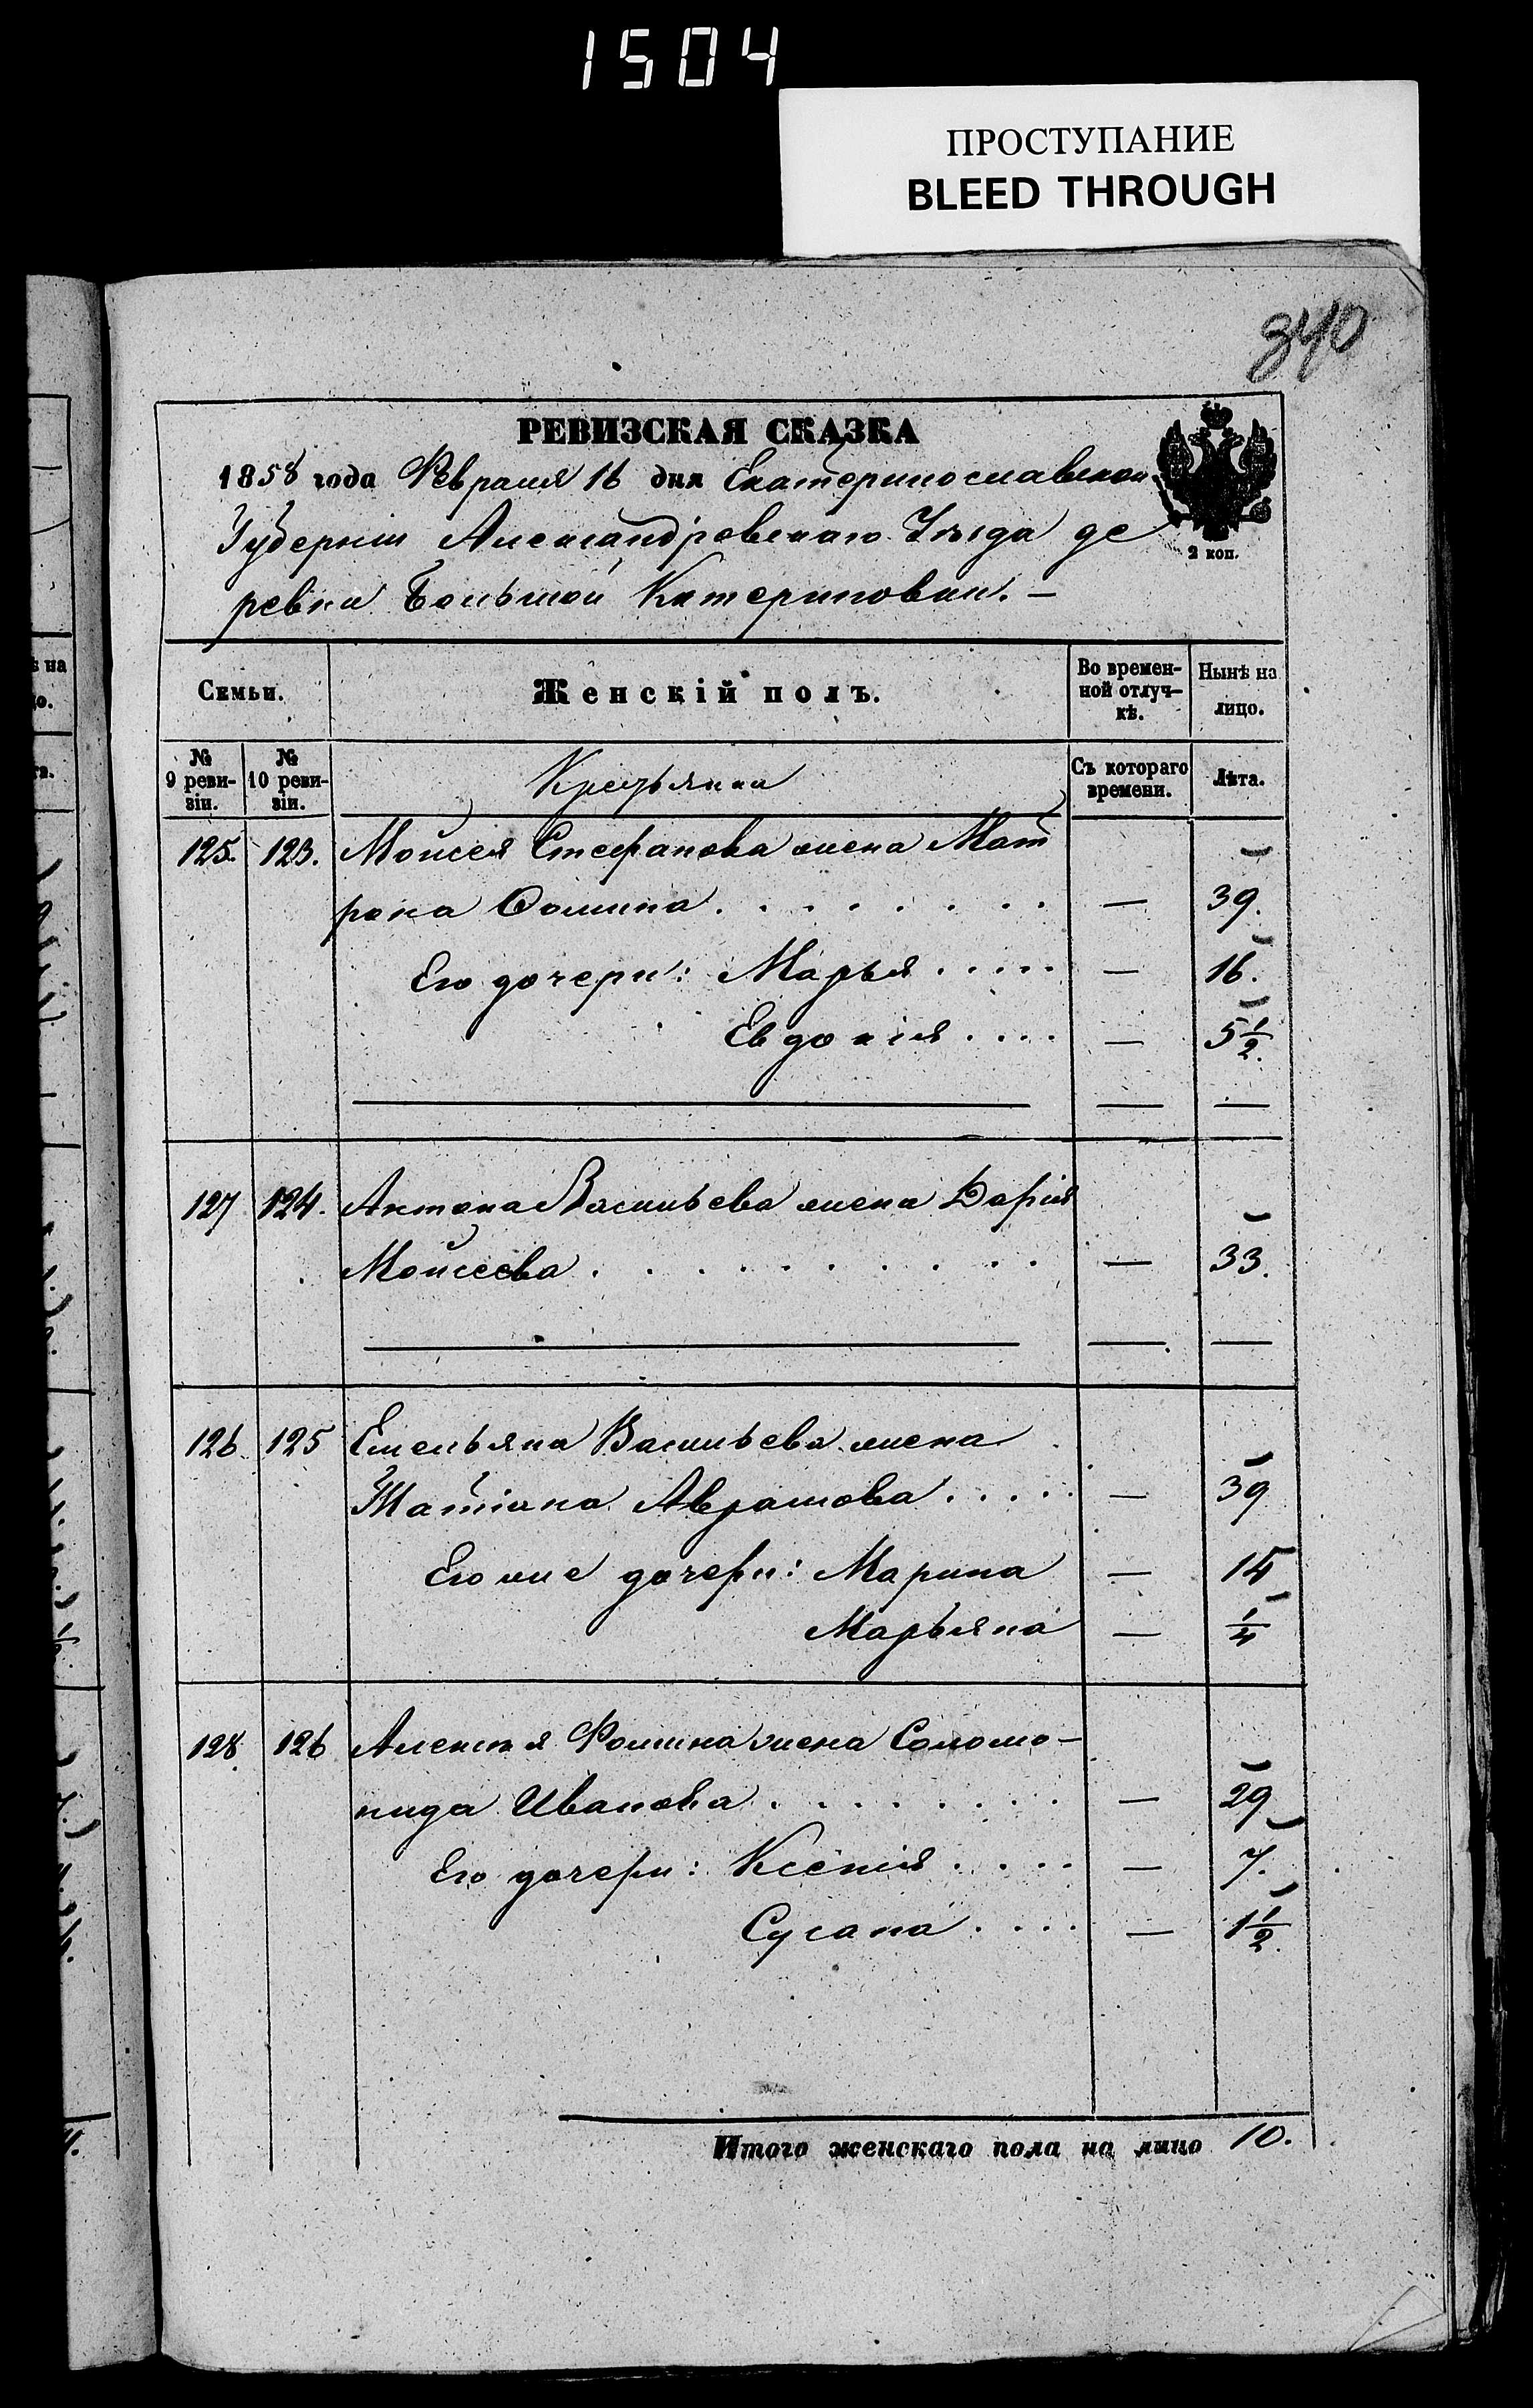 1504
ПРОСТУПАНИЕ
BLEED THROUGH
340
РЕВИЗСКАЯ СКАЗКА
1858 года Февраля 16 дня Екатеринославской
Губерніи Александровскаго Уѣзда де
ревни Большой Катериновки. —
2 коп.
Семьи.
Женскій полъ.
Во времен-
ной отлуч-
кѣ.
Нынѣ на
лицо.
№
9 реви-
зіи.
№
10 реви-
зіи.
Съ котораго
времени.
Лѣта.
125. 123. Моисея Стефанова жена Мат
рона Фомина . . . . . . . . — 39.
Его дочери: Марья . . . . . — 16.
Евдокія . . . . — 5 1/2.
127 124. Антона Васильева жена Дарія
Моисеева . . . . . . . . . . — 33.
126. 125 Емельяна Васильева жена
Татіана Аврамова . . . . . — 39
Его же дочери: Марина — 15
Марьяна — 1/4
128. 126 Алексѣя Фомина жена Соломо-
нида Иванова . . . . . . . . — 29
Его дочери: Ксенія . . . . — 7.
Сусана . . . . — 1 1/2.
Итого женскаго пола на лицо 10.